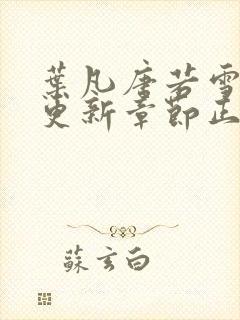 葉凡唐若雪
更新章節正
蘇玄白